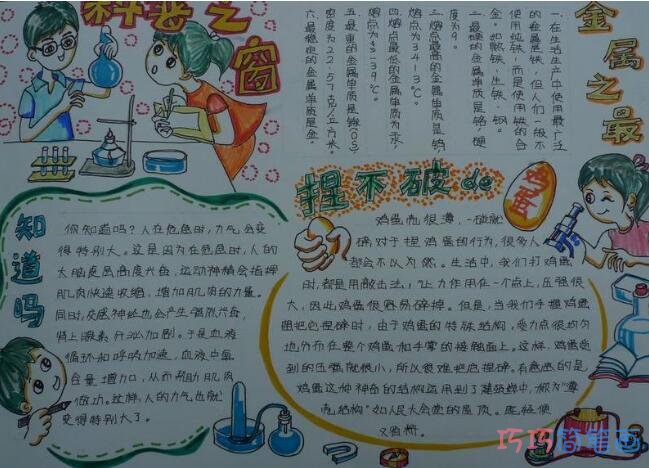 科技之窗
金属之最
一.在生活生产中使用最广泛
的金属是铁,但人们一般不
使用纯铁,而是使用铁的合
金。如软铁、生铁、钢
二.最硬的金属单质是铬,硬
度为9。
三.熔点最高的金属单质为钨,
熔点为3413℃
四.熔点最低的金属单质为汞,
熔点为-39℃
五.最重的金属单质是锇(OS)
密度为22.57克/立方米。
六.最稳定的金属单质是金。
知道吗
你知道吗?人在危急时,力气会变
得特别大。这是因为在危急时,人的
大脑皮层高度兴奋,运动神经会指挥
肌肉快速收缩,增加肌肉的力量。
同时,交感神经也会产生强烈兴奋,
肾上腺素分泌加剧。于是血液
循环和呼吸加速,血液中氧
含量增加,从而帮助肌肉
做功。这样,人的力气也就
变得特别大了。
捏不破de鸡蛋
鸡蛋壳很薄,一碰就
碎,对于捏鸡蛋的行为,很多人
都会不以为然。生活中,我们打鸡蛋
时,都是用敲击法,让力作用在一个点上,压强很
大,因此鸡蛋很容易碎掉。但是,当我们手握鸡蛋
把它捏碎时,由于鸡蛋的特殊结构,受力点很均匀
地分布在整个鸡蛋和手掌的接触面上。这样,鸡蛋受
到的压强就很小,所以很难把它捏碎。有意思的是
鸡蛋这种神奇的结构运用到了建筑中,做为“薄
壳结构”如人民大会堂的屋顶。既轻便
又省料。
巧巧简笔画